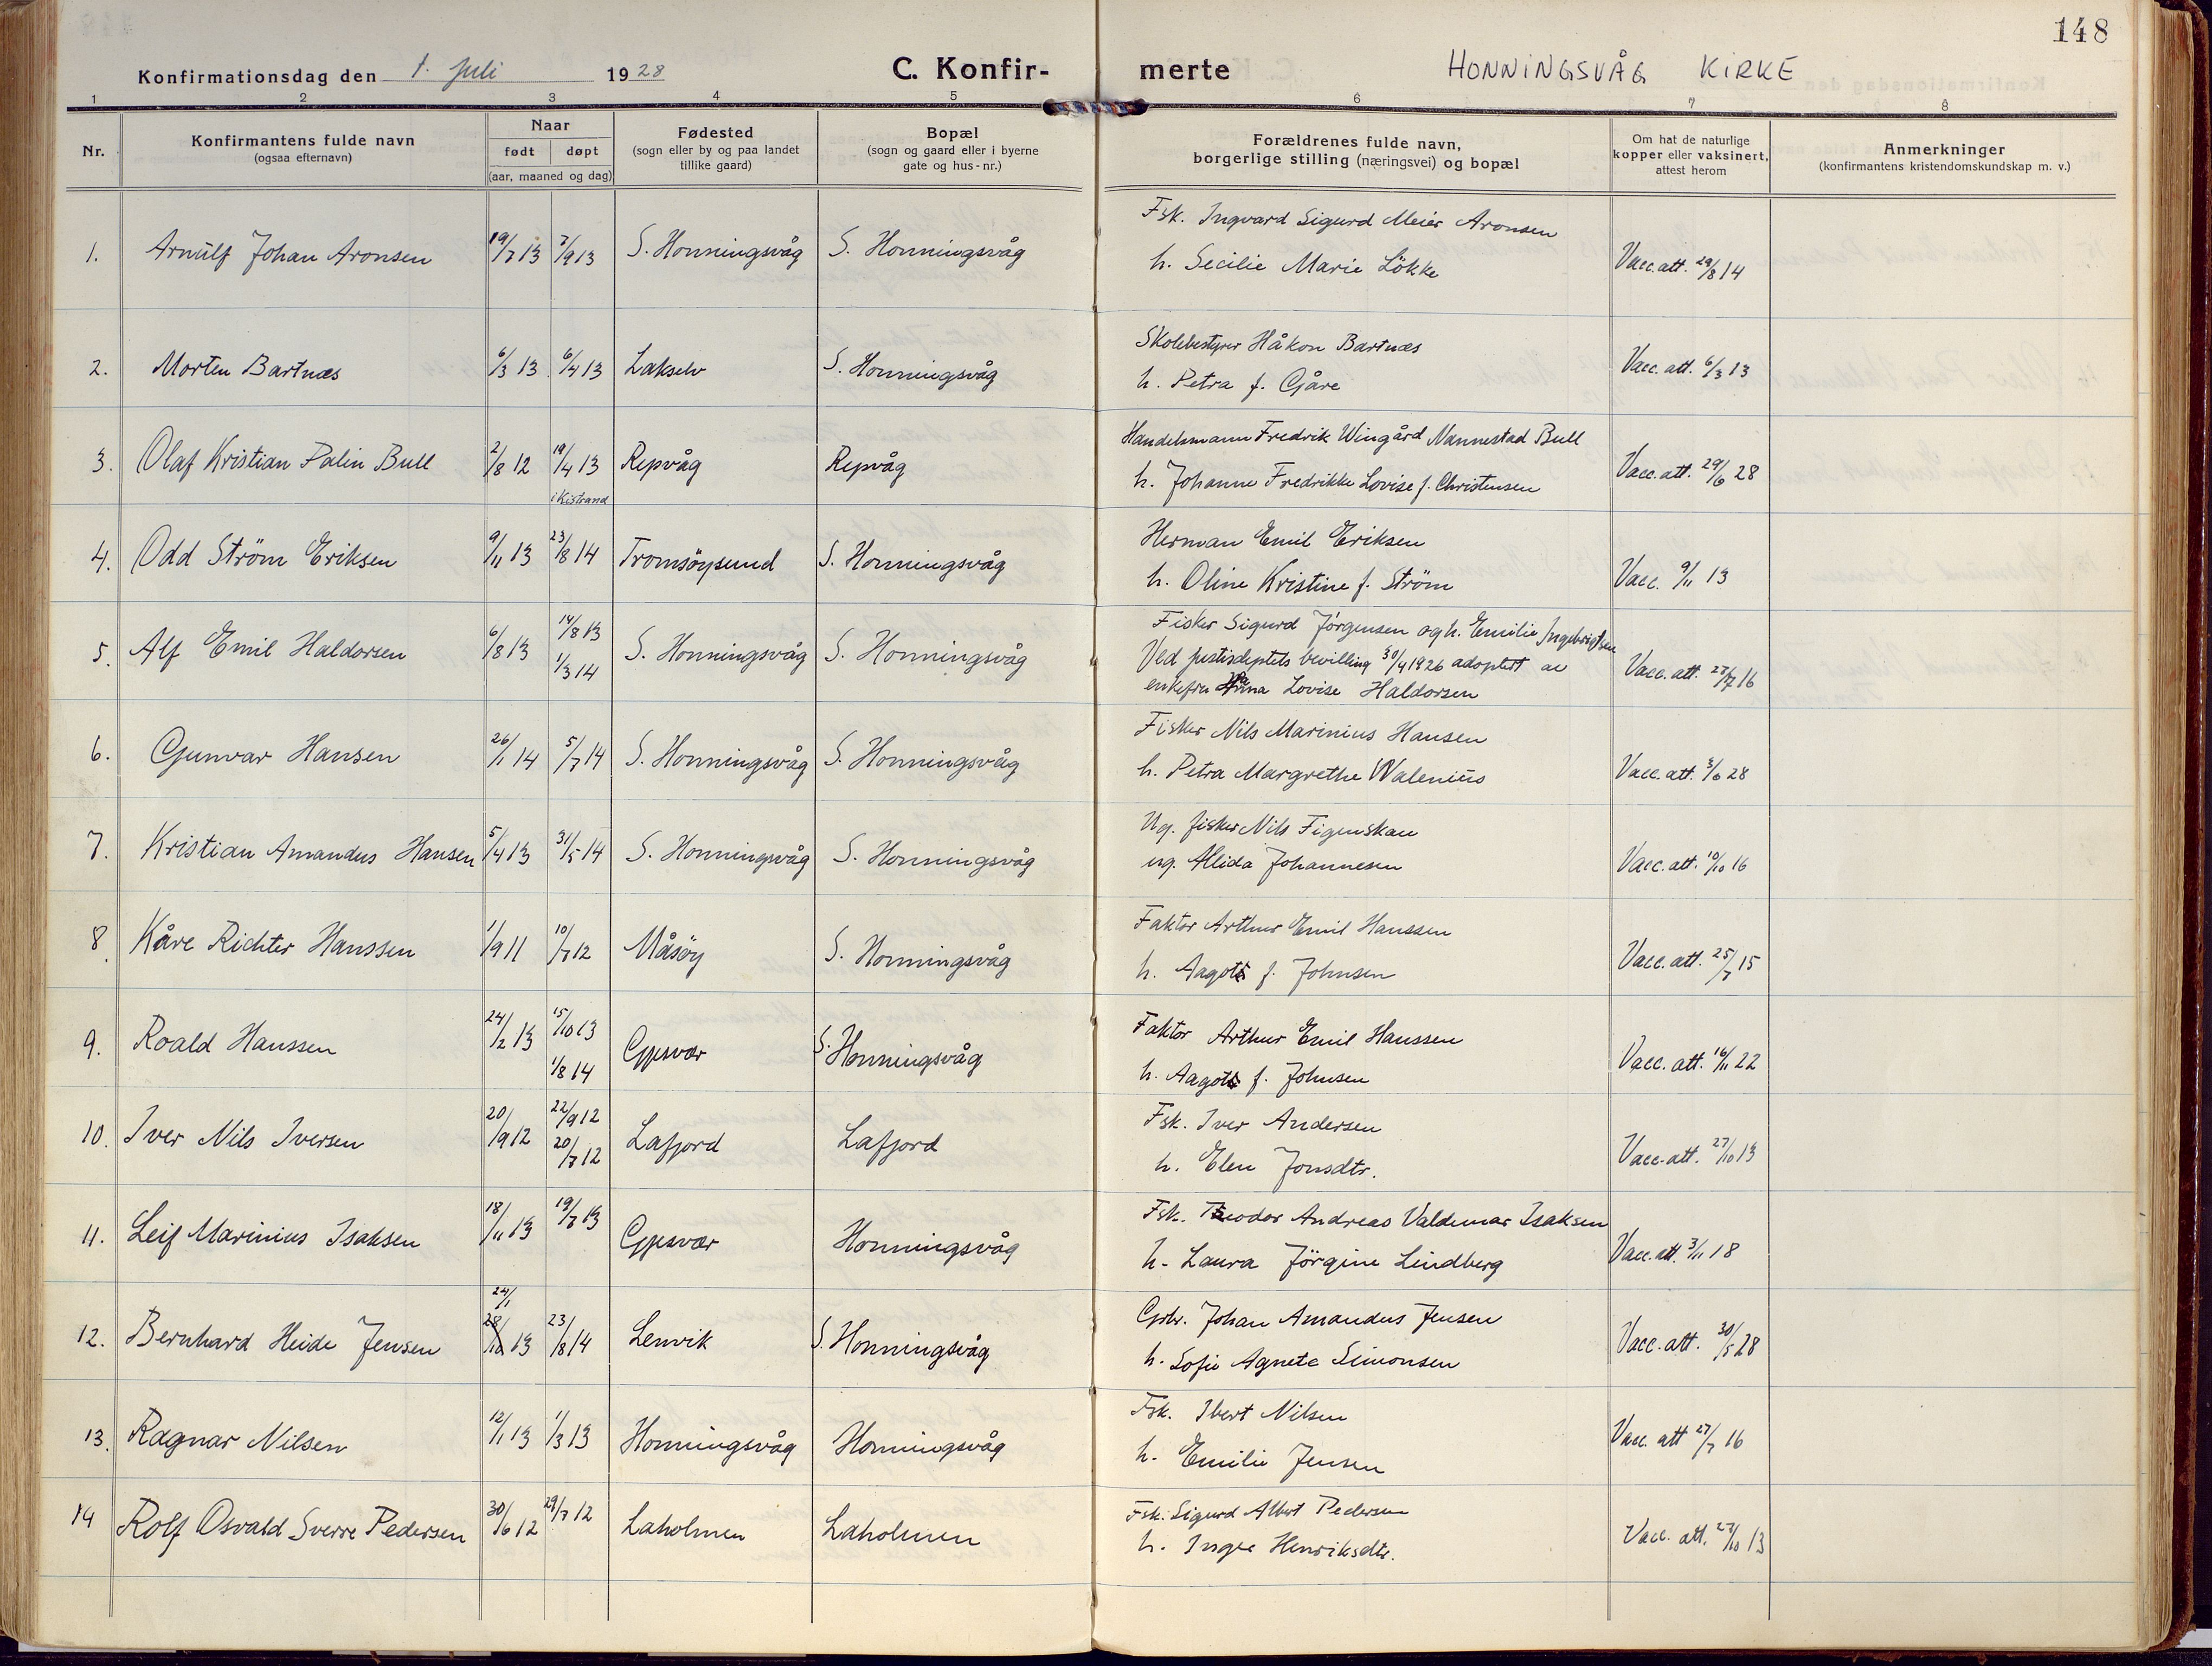 148
Konfirmationsdag den 1. Juli 1928 C. Konfirmerte HONNINGSVÅG KIRKE
1 2 3 4 5 6 7 8
Nr.
Konfirmantens fulde navn
(ogsaa efternavn)
Naar
født døpt
(aar, maaned og dag)
Fødested
(sogn eller by og paa landet
tillike gaard)
Bopæl
(sogn og gaard eller i byerne
gate og hus-nr.)
Forældrenes fulde navn,
borgerlige stilling (næringsvei) og bopæl
Om hat de naturlige
kopper eller vaksinert,
attest herom
Anmerkninger
(konfirmantens kristendomskundskap m. v.)
1. Arnulf Johan Aronsen 19/7 13 7/9 13 S. Honningsvåg S. Honningsvåg
Fsk. Ingvard Sigurd Meier Aronsen
h. Secilie Marie Lökke
Vacc. att. 29/8 14
2. Morten Bartnæs 6/3 13 6/4 13 Lakselv S. Honningsvåg
Skolebestyrer Håkon Bartnæs
h. Petra f. Gåre
Vacc. att. 6/3 13
3. Olaf Kristian Palin Bull 2/8 12 19/4 13 Repvåg Repvåg
i Kistrand
Handelsmann Fredrik Wingård Nannestad Bull
h. Johanne Fredrikke Lovise f. Christensen
Vacc. att. 29/6 28
4. Odd Ström Eriksen 9/11 13 23/8 14 Tromsöysund S. Honningsvåg
Herman Emil Eriksen
h. Oline Kristine f. Ström
Vacc. 9/11 13
5. Alf Emil Haldorsen 6/8 13 14/8 13 1/3 14 S. Honningsvåg S. Honningsvåg
Fisker Sigurd Jörgensen og h. Emilie Ingebrigtsen
Ved justisdeptets bevilling 30/4 1926 adoptert av
enkefru Lovise Haldorsen
Vacc. att. 27/7 16
6. Gunvar Hansen 26/1 14 5/7 14 S. Honningsvåg S. Honningsvåg
Fisker Nils Marinius Hansen
h. Petra Margrethe Walenius
Vacc. att. 3/6 28
7. Kristian Amandus Hansen 5/4 13 31/5 14 S. Honningsvåg S. Honningsvåg
Ug. fisker Nils Figenskau
ug. Alida Johannesen
Vacc. att. 10/10 16
8. Kåre Richter Hanssen 1/9 11 10/7 12 Måsöy S. Honningsvåg
Faktor Arthur Emil Hanssen
h. Aagot f. Johnsen
Vacc. att. 25/7 15
9. Roald Hanssen 24/2 13 15/10 13 1/8 14 Gjesvær S. Honningsvåg
Faktor Arthur Emil Hanssen
h. Aagot f. Johnsen
Vacc. att. 16/11 22
10. Iver Nils Iversen 20/9 12 22/9 12 20/7 12 Lafjord Lafjord
Fsk. Iver Andersen
h. Elen Jonsdtr.
Vacc. att. 27/10 13
11. Leif Marinius Isaksen 18/11 13 19/7 13 Gjesvær Honningsvåg
Fsk. Teodor Andreas Valdemar Isaksen
h. Laura Jörgine Lindberg
Vacc. att. 3/11 18
12. Bernhard Heide Jensen 24/1 28/10 13 23/8 14 Lenvik S. Honningsvåg
Grbr. Johan Amandus Jensen
h. Sofie Agnete Simonsen
Vacc. att. 30/5 28
13. Ragnar Nilsen 12/1 13 1/3 13 Honningsvåg Honningsvåg
Fsk. Ibert Nilsen
h. Emilie Jensen
Vacc. att 27/7 16
14 Rolf Osvald Sverre Pedersen 30/6 12 29/7 12 Laholmen Laholmen
Fsk. Sigurd Albert Pedersen
h. Inga Henriksdtr.
Vacc. att. 27/10 13